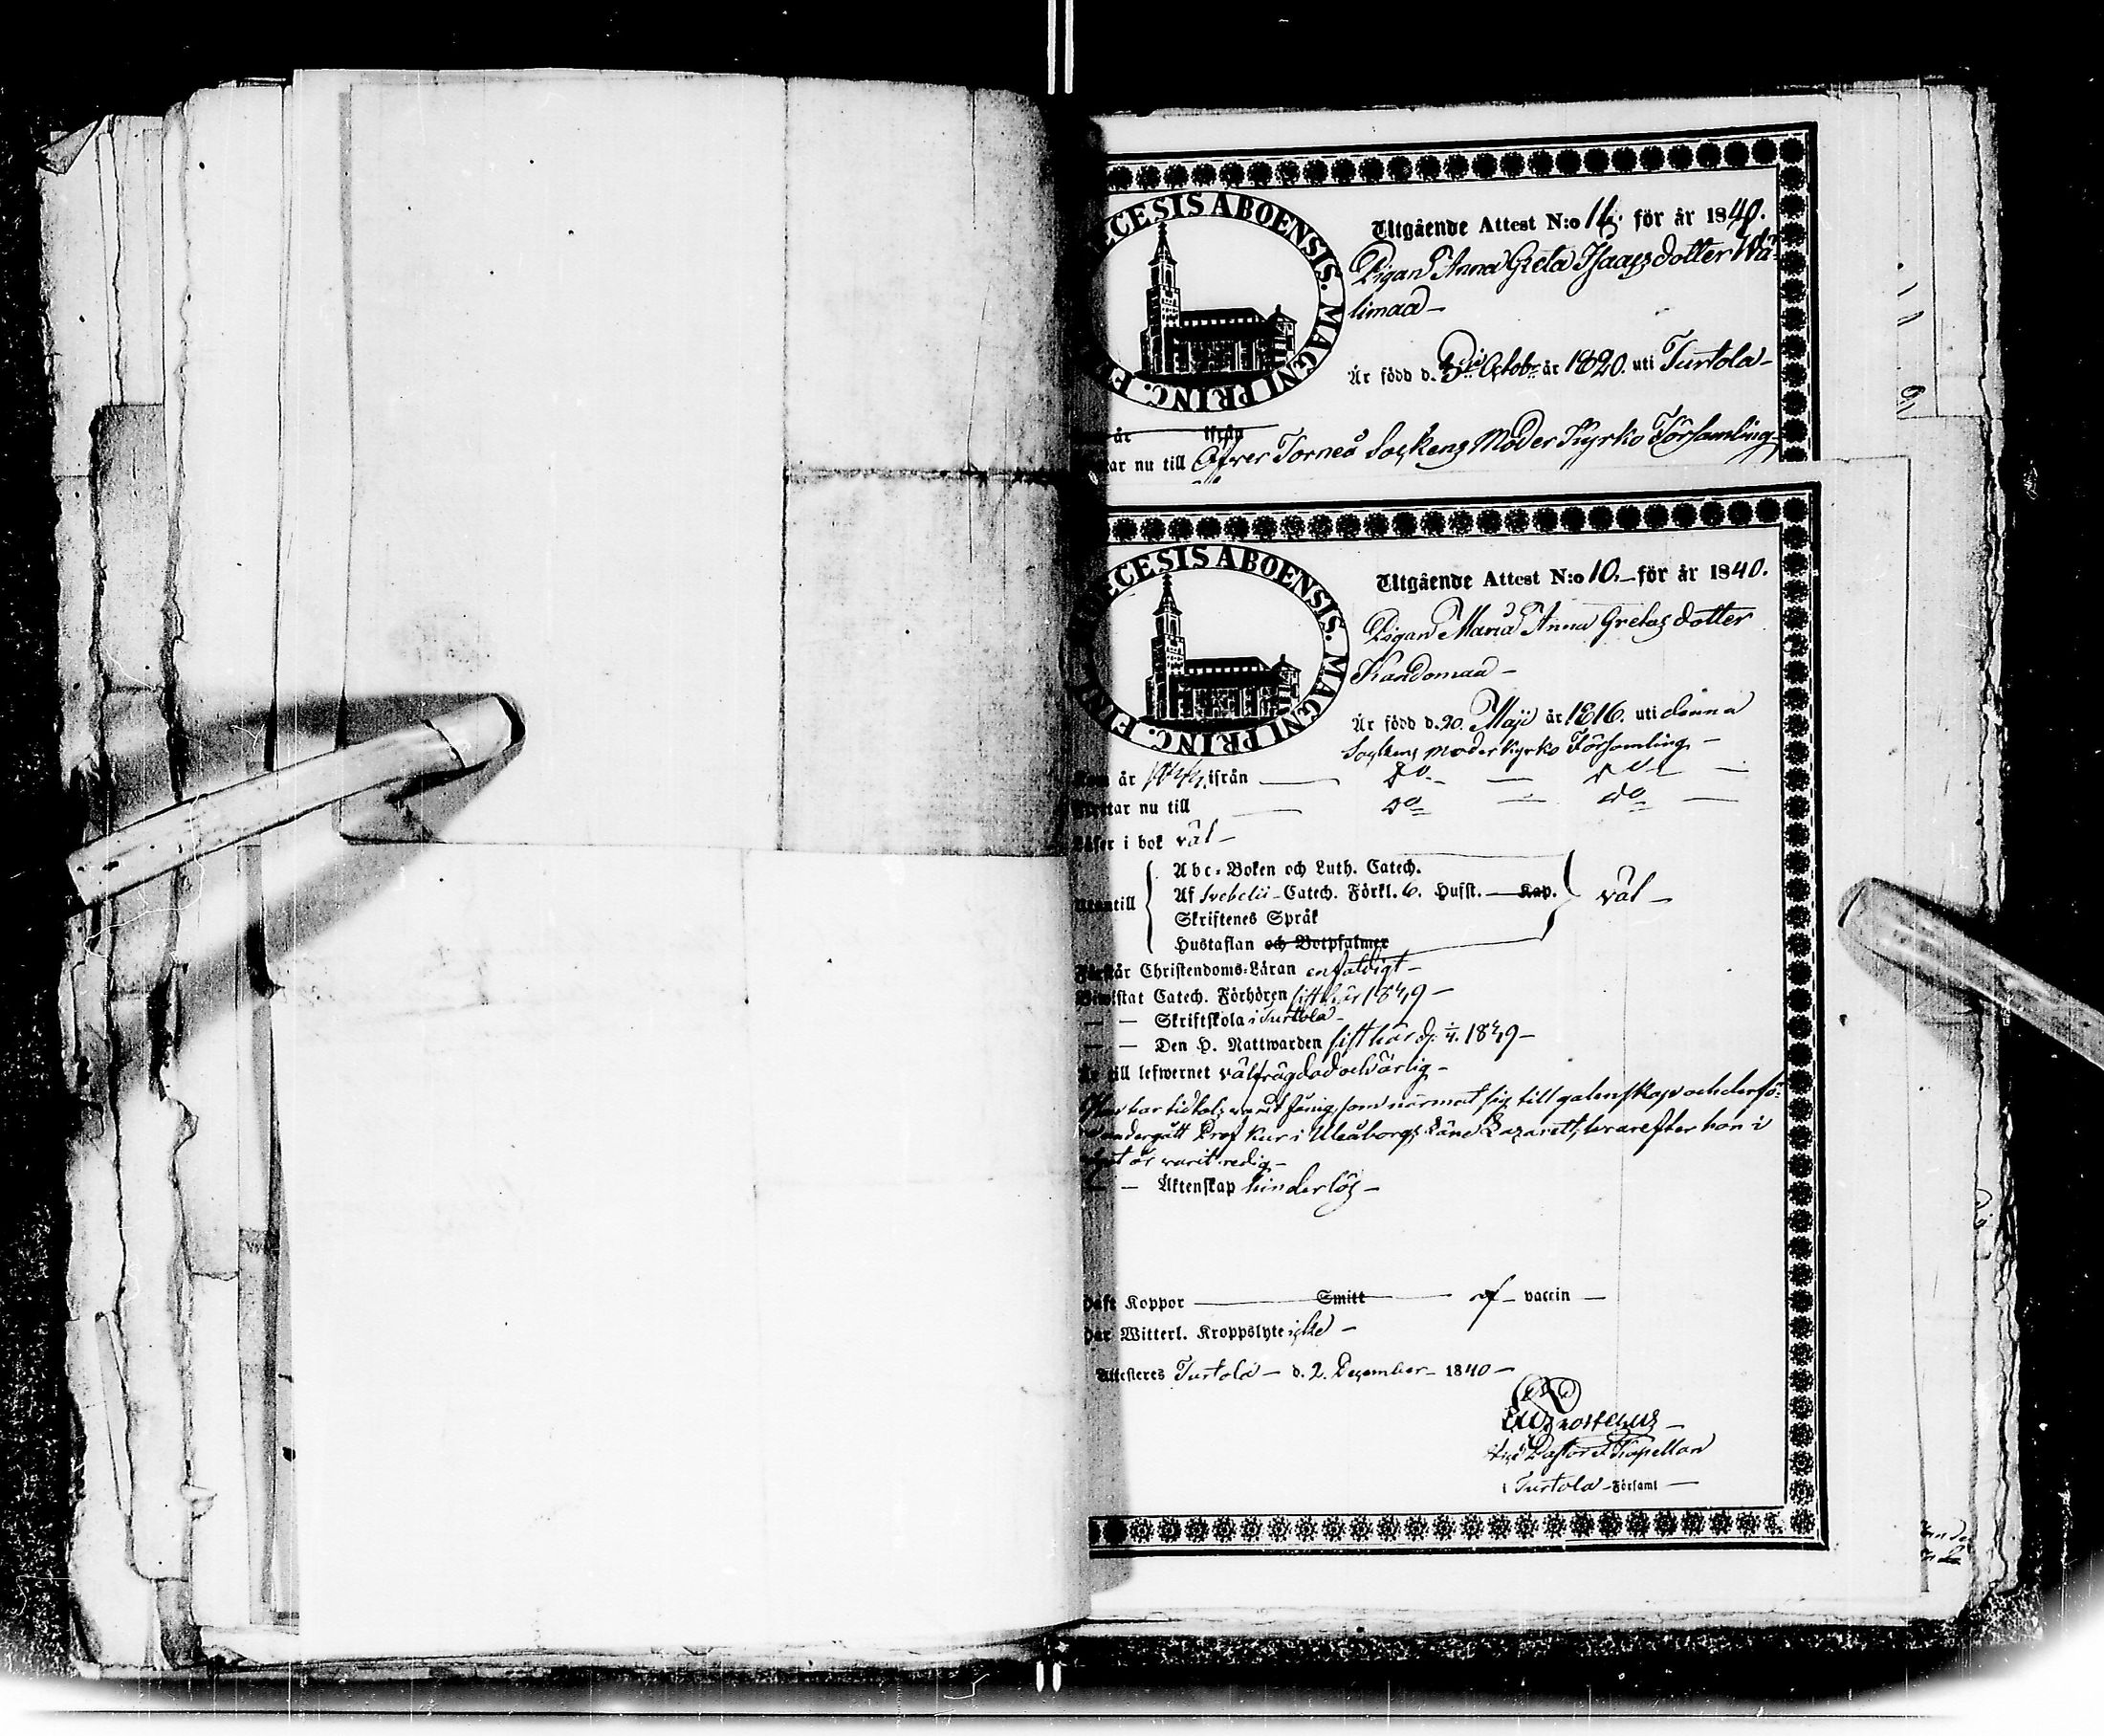 ECESIS ABOENSIS. MAGNI PRINC. F
Utgående Attest N:o 14. för år 1840.
Pigan Anna Greta Isaacsdotter Wä-
limaa –
Är född d. 3die Octobr år 1820. uti Turtola –
år ifrån
tar nu till Öfver Torneå Sockens Moder Kyrko Församling –
ECESIS ABOENSIS. MAGNI PRINC. FIN
Utgående Attest N:o 10. – för år 1840.
Pigan Maria Anna Gretasdotter
Kandomaa –
Är född d. 20. Maji år 1816. uti denna
Sockens moderkyrko Församling –
Kom år ifrån — Do — Do —
Flyttar nu till — do — do —
Läser i bok väl –
Abc-Boken och Luth. Catech.
Utantill Af Svebelii – Catech. Förkl. 6. Hufst. — Kap. väl –
Skriftenes Språk
Hustaflan och Botpsalmer
Förstår Christendoms-Läran enfaldigt –
Biwistat Catech. Förhören sist här 1849 –
— — Skriftskola i Turtola –
— — Den H. Nattwarden sist här d. 1849 –
Är till lefwernet välfrägdad och ärlig –
har tidtals varit fånig, som närmat sig till galenskap och derfö-
re undergått Prof kur i Uleåborgs Läns Lazarett, hvarefter hon i
år varit redig –
— — Äktenskap hinderlös –
Haft Koppor — Smitt — af – vaccin —
Har Witterl. Kroppslyte icke –
Attesteres Turtola – d. 2. December – 1840 –
Vice Pastor & Kapellan
i Turtola – Församl —